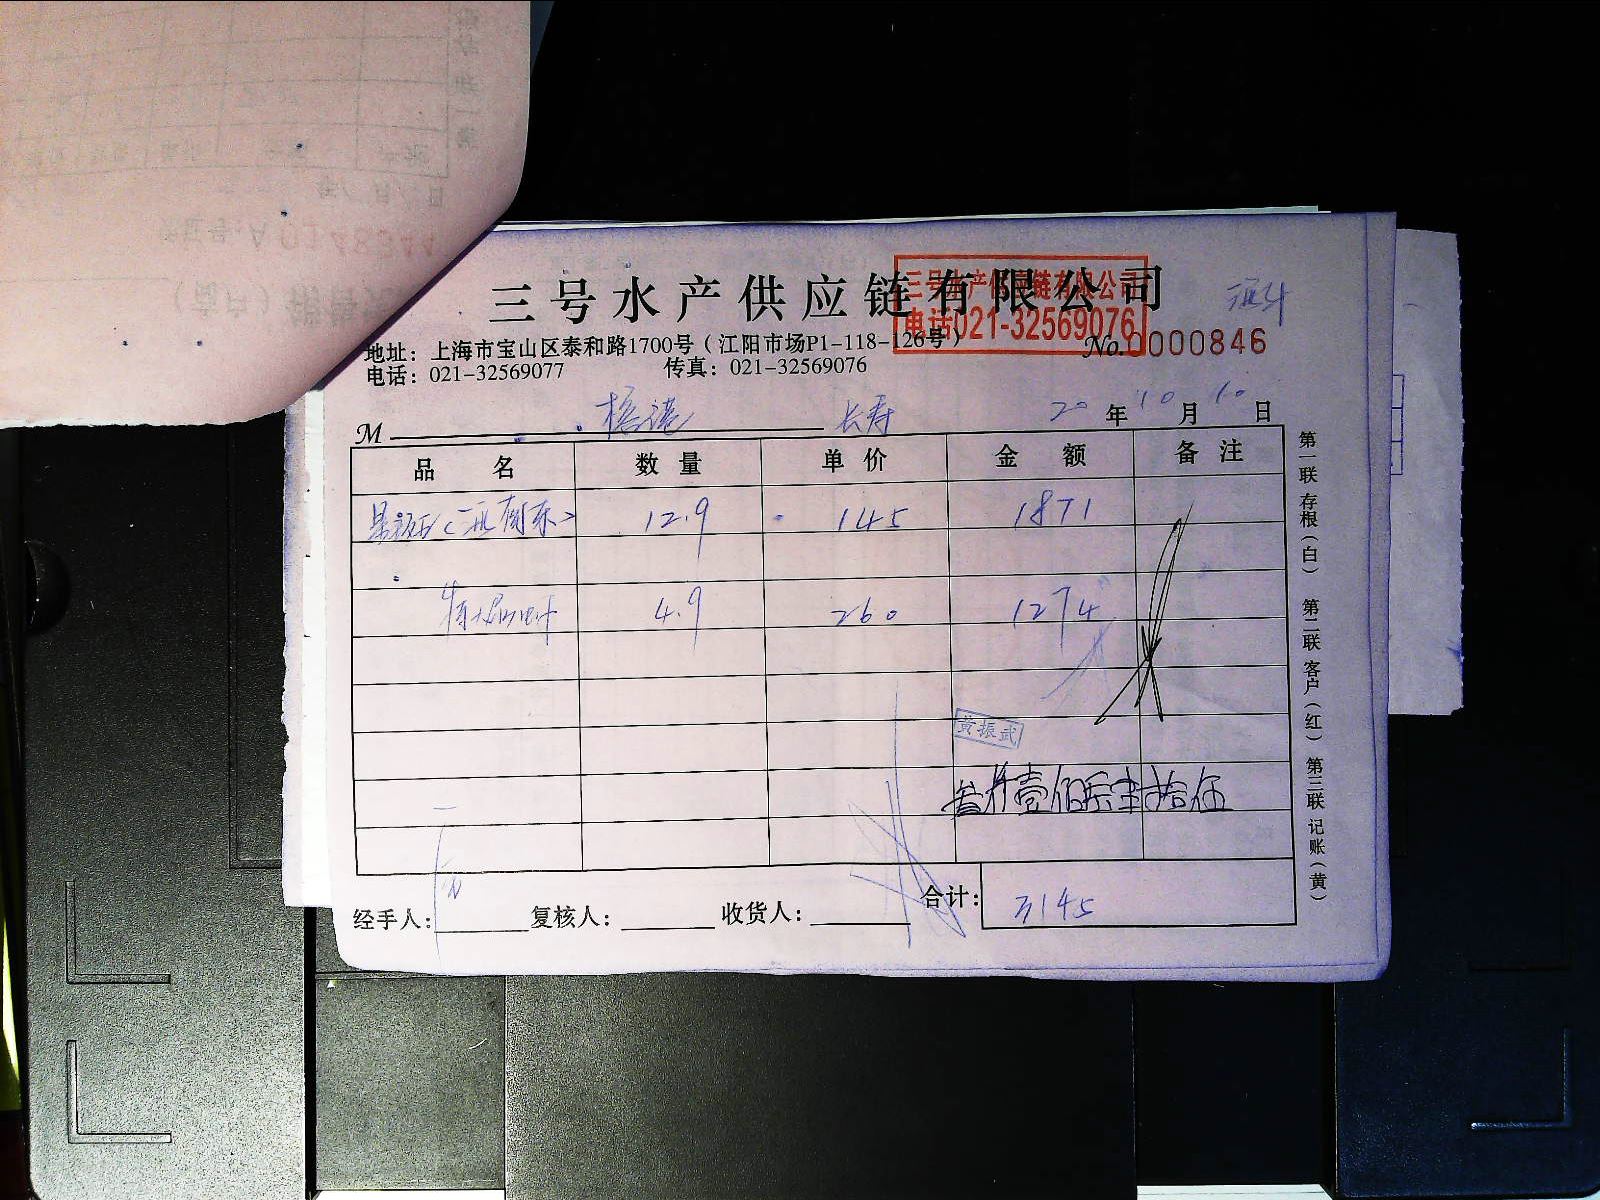 三号水产供应链有限公司
三号水产供应链有限公司
电话021-32569076
地址：上海市宝山区泰和路1700号（江阳市场P1-118-126号）
No.0000846
电话：021-32569077 传真：021-32569076
M 长寿 20年10月10日
品名 数量 单价 金额 备注
12.9 145 1871
4.9 260 1274
黄振武
叁仟壹佰肆拾伍
合计：3145
经手人： 复核人： 收货人：
第一联 存根（白） 第二联 客户（红） 第三联 记账（黄）